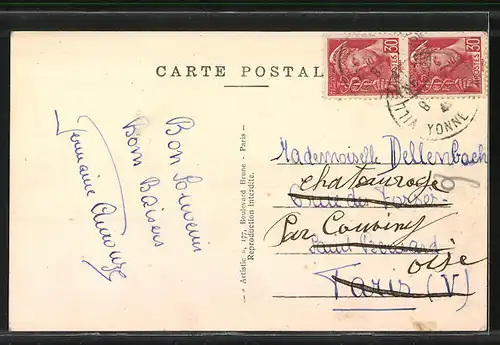 CARTE POSTAL
30
POSTES
30
YONNE
Bon Souvenir
Bons Baisers
Germaine
« Artistic », 177, Boulevard Brune - Paris -
Reproduction interdite.
Mademoiselle Dellenbach
chateaurouge
rue
par Couvigny
Saint Bernard
oise
Paris (V)